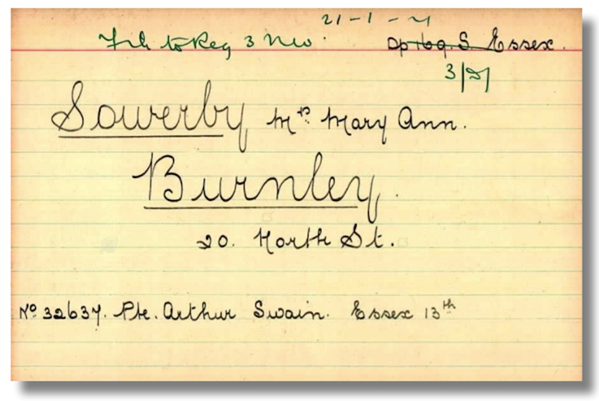 21-1-21
File to Reg 3 NW. Essex.
3/21
Sowerby Mrs Mary Ann.
Burnley.
20. North St.
No 32637. Pte. Arthur Swain. Essex 13th